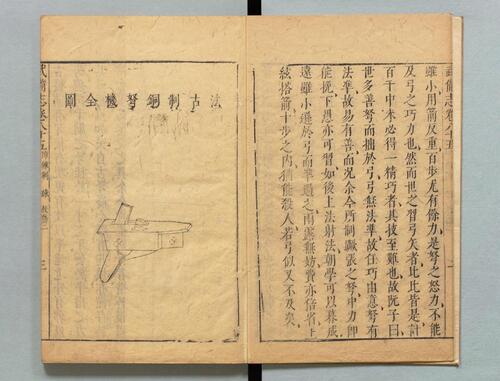 武備志卷八十五
雖小用箭反重百步尤有餘力是弩之怒力不能
及弓之巧力也然而世之習弓矢者比比皆是計
百千中未必得一精巧者其技至難也故阮子曰
世多善弩而拙於弓弓無法準故任巧由意弩有
法準故易有善而況余今所制蹶張之弩中力即
能扼下愚亦可習如後上法射法朝學可以暮成
遠雖小遜於弓而準過之雨露無妨費亦倍省上
絃搭箭十步之內猶能殺人若弓似又不及矣
法古制銅弩機全圖
武備志卷八十五 陣練制 練 三